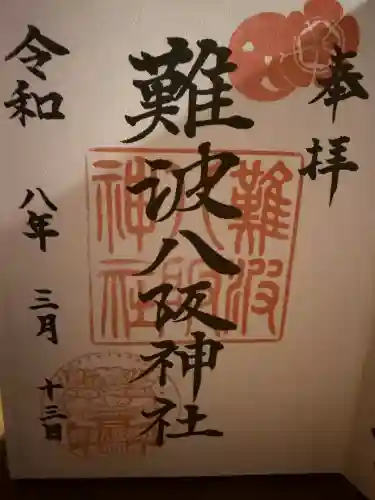 奉拝
難波八阪神社
難波八阪神社
令和八年三月十三日